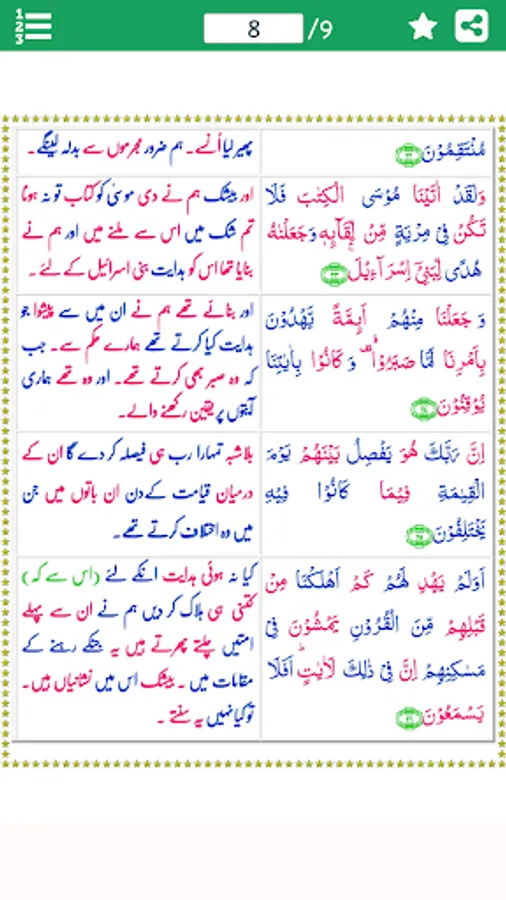 1
2
3
8 /9
مُنْتَقِمُوْنَ
پھیر لیا اُنسے۔ ہم ضرور مجرموں سے بدلہ لینگے۔
وَلَقَدْ اٰتَيْنَا مُوْسَى الْكِتٰبَ فَلَا
تَكُنْ فِىْ مِرْيَةٍ مِّنْ لِّقَآئِهٖ وَجَعَلْنٰهُ
هُدًى لِّبَنِىْۤ اِسْرَآءِيْلَ
اور بیشک ہم نے دی موسیٰ کو کتاب تو نہ ہونا
تم شک میں اس سے ملنے میں اور ہم نے
بنایا تھا اس کو ہدایت بنی اسرائیل کے لئے ۔
وَ جَعَلْنَا مِنْهُمْ اَىِٕمَّةً يَّهْدُوْنَ
بِاَمْرِنَا لَمَّا صَبَرُوْا ۗ وَ كَانُوْا بِاٰيٰتِنَا
يُوْقِنُوْنَ
اور بنائے تھے ہم نے ان میں سے پیشوا جو
ہدایت کیا کرتے تھے ہمارے حکم سے۔ جب
کہ وہ صبر بھی کرتے تھے۔ اور وہ تھے ہماری
آیتوں پر یقین رکھنے والے۔
اِنَّ رَبَّكَ هُوَ يَفْصِلُ بَيْنَهُمْ يَوْمَ
الْقِيٰمَةِ فِيْمَا كَانُوْا فِيْهِ
يَخْتَلِفُوْنَ
بلاشبہ تمہارا رب ہی فیصلہ کر دے گا ان کے
درمیان قیامت کے دن ان باتوں میں جن
میں وہ اختلاف کرتے تھے۔
اَوَلَمْ يَهْدِ لَهُمْ كَمْ اَهْلَكْنَا مِنْ
قَبْلِهِمْ مِّنَ الْقُرُوْنِ يَمْشُوْنَ فِىْ
مَسٰكِنِهِمْ اِنَّ فِىْ ذٰلِكَ لَاٰيٰتٍ ؕ اَفَلَا
يَسْمَعُوْنَ
کیا نہ ہوئی ہدایت انکے لئے (اس سے کہ)
کتنی ہی ہلاک کر دیں ہم نے ان سے پہلے
امتیں چلتے پھرتے ہیں یہ جنکے رہنے کے
مقامات میں ۔ بیشک اس میں نشانیاں ہیں۔
تو کیا نہیں یہ سنتے ۔